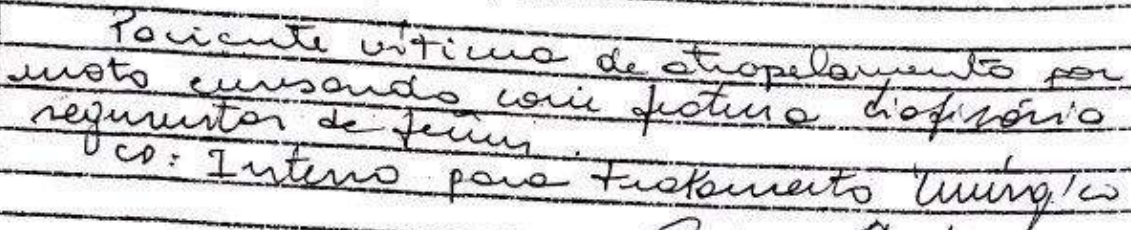 Paciente vítima de atropelamento por
moto cursando com fratura diafisária
segmentar de fêmur.
CD: Interno para tratamento cirúrgico